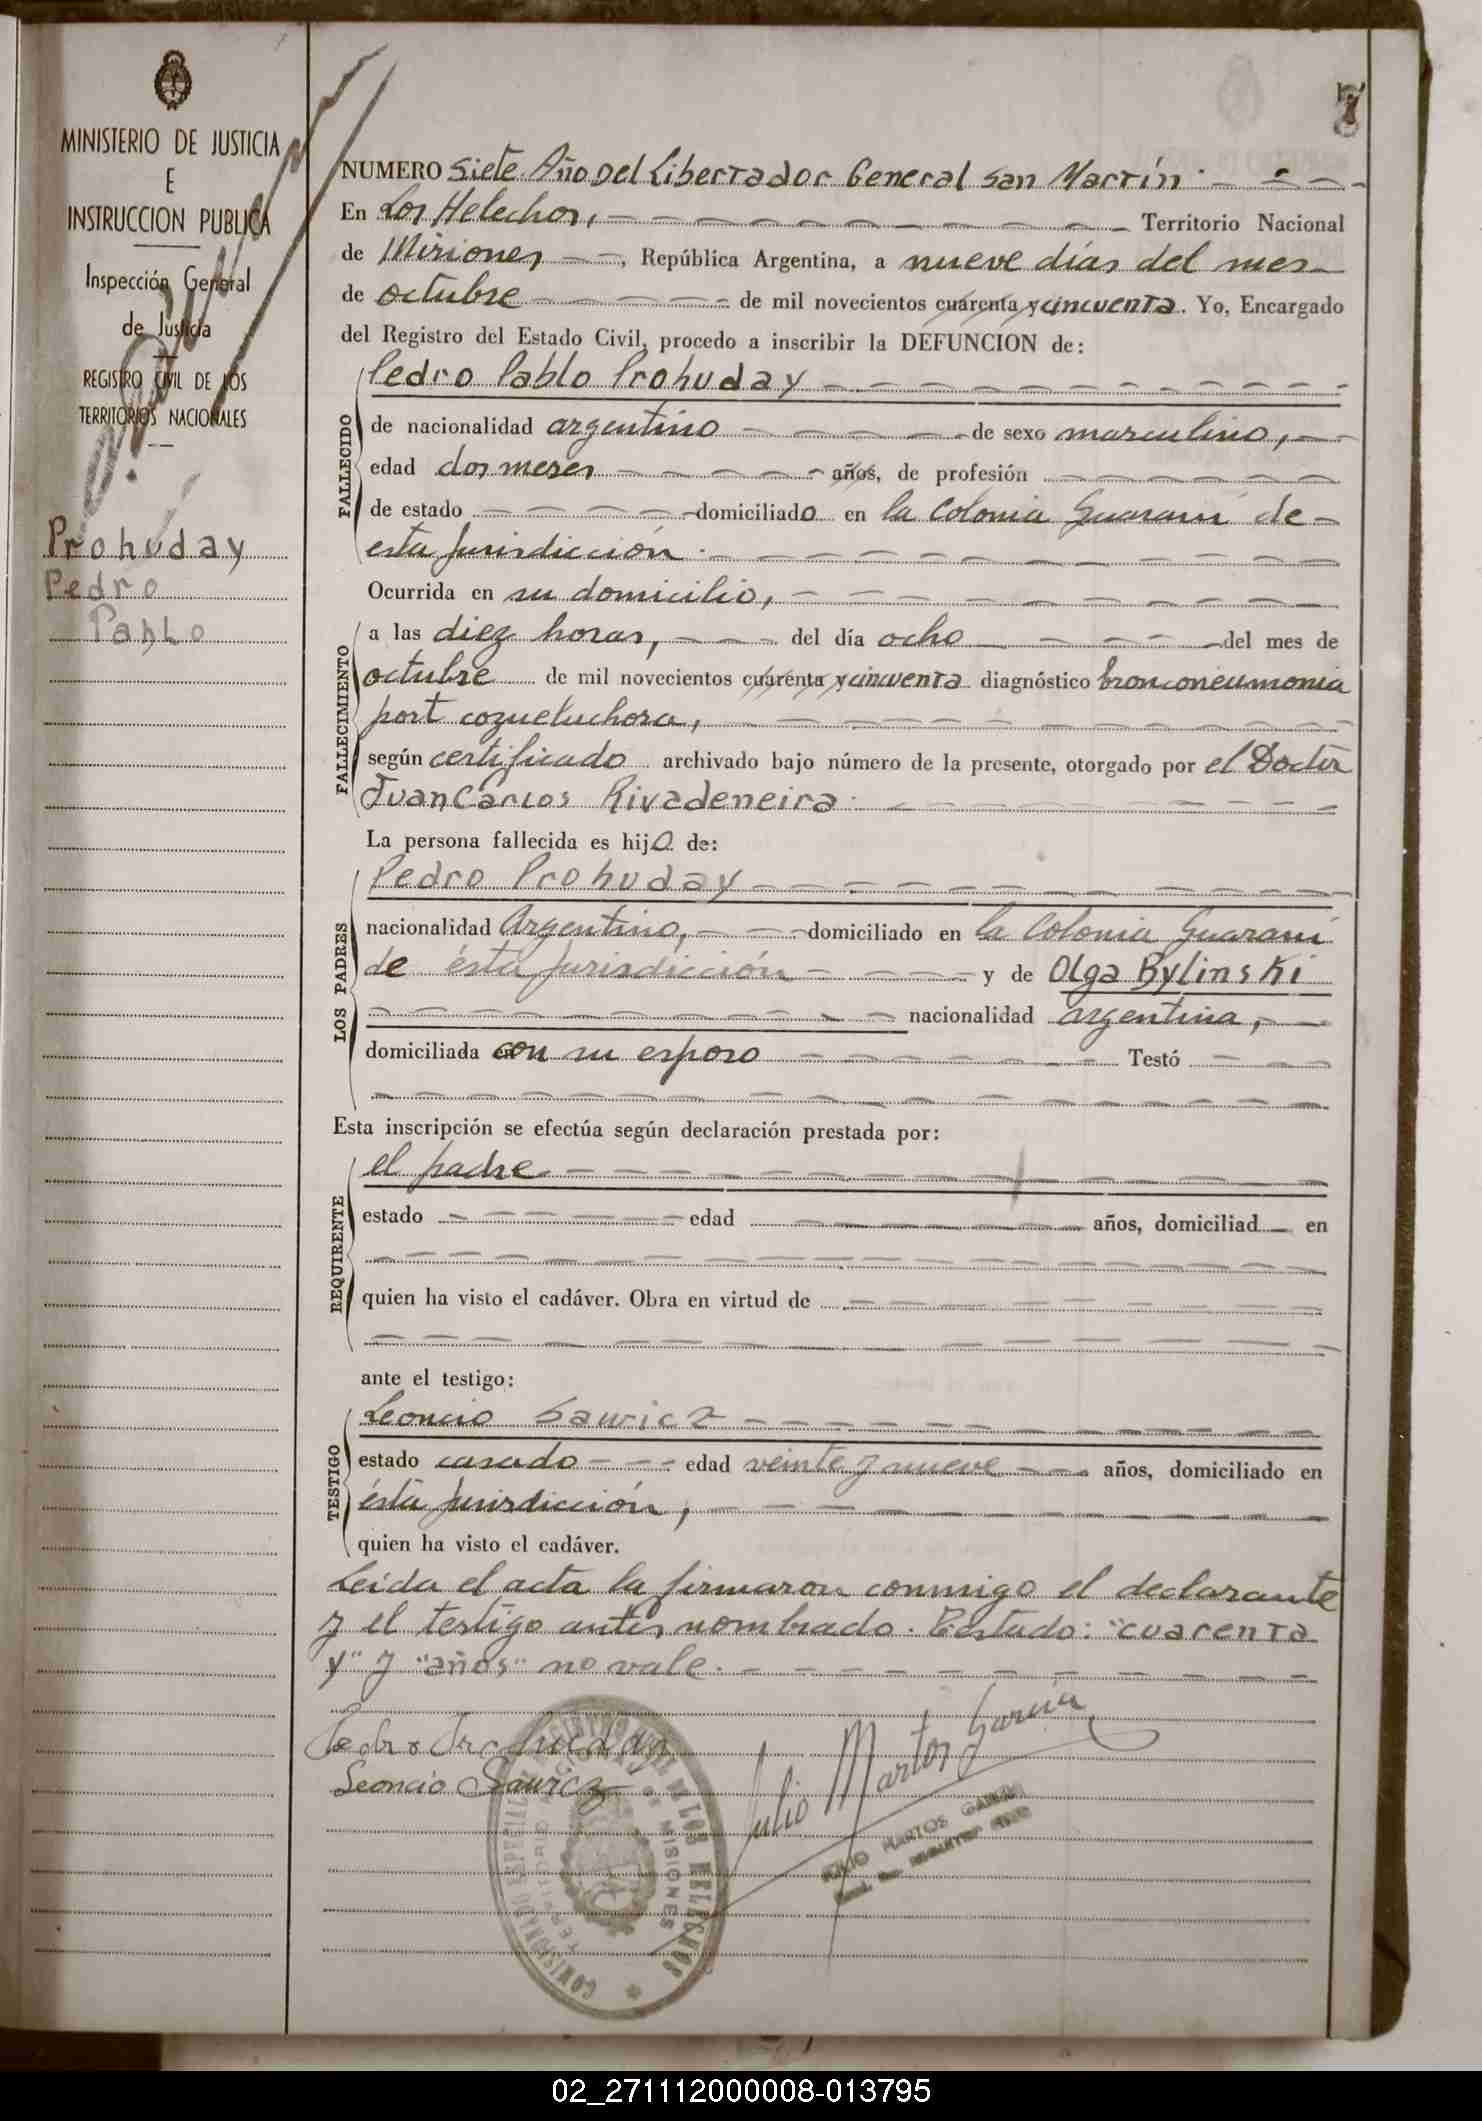 MINISTERIO DE JUSTICIA
E
INSTRUCCION PUBLICA
Inspección General
de Justicia
REGISTRO CIVIL DE LOS
TERRITORIOS NACIONALES
Prohuday
Pedro
Pablo
7
NUMERO Siete. Año Del Libertador General San Martín.
En Los Helechos, Territorio Nacional
de Misiones, República Argentina, a nueve días del mes
de octubre de mil novecientos cuarenta y cincuenta. Yo, Encargado
del Registro del Estado Civil, procedo a inscribir la DEFUNCION de:
Pedro Pablo Prohuday
FALLECIDO
de nacionalidad argentino de sexo masculino,
edad dos meses años, de profesión
de estado domiciliado en la Colonia Guaraní de
esta jurisdicción.
FALLECIMIENTO
Ocurrida en su domicilio,
a las diez horas, del día ocho del mes de
octubre de mil novecientos cuarenta y cincuenta diagnóstico bronconeumonia
post coqueluchosa,
según certificado archivado bajo número de la presente, otorgado por el Doctor
Juan Carlos Rivadeneira.
La persona fallecida es hijo de:
LOS PADRES
Pedro Prohuday
nacionalidad Argentino, domiciliado en la Colonia Guaraní
de ésta jurisdicción y de Olga Bylinski
nacionalidad argentina,
domiciliada con su esposo Testó
Esta inscripción se efectúa según declaración prestada por:
REQUIRENTE
el padre
estado edad años, domiciliad en
quien ha visto el cadáver. Obra en virtud de
ante el testigo:
TESTIGO
Leoncio Sawicz
estado casado edad veinte y nueve años, domiciliado en
ésta jurisdicción,
quien ha visto el cadáver.
Leída el acta la firmaron conmigo el declarante
y el testigo antes nombrado. Testado: "cuarenta
y" y "años" no vale.
Pedro
Leoncio
Julio Martos García
JULIO MARTOS GARCIA
DE LOS HELECHOS
DE MISIONES
02_271112000008-013795